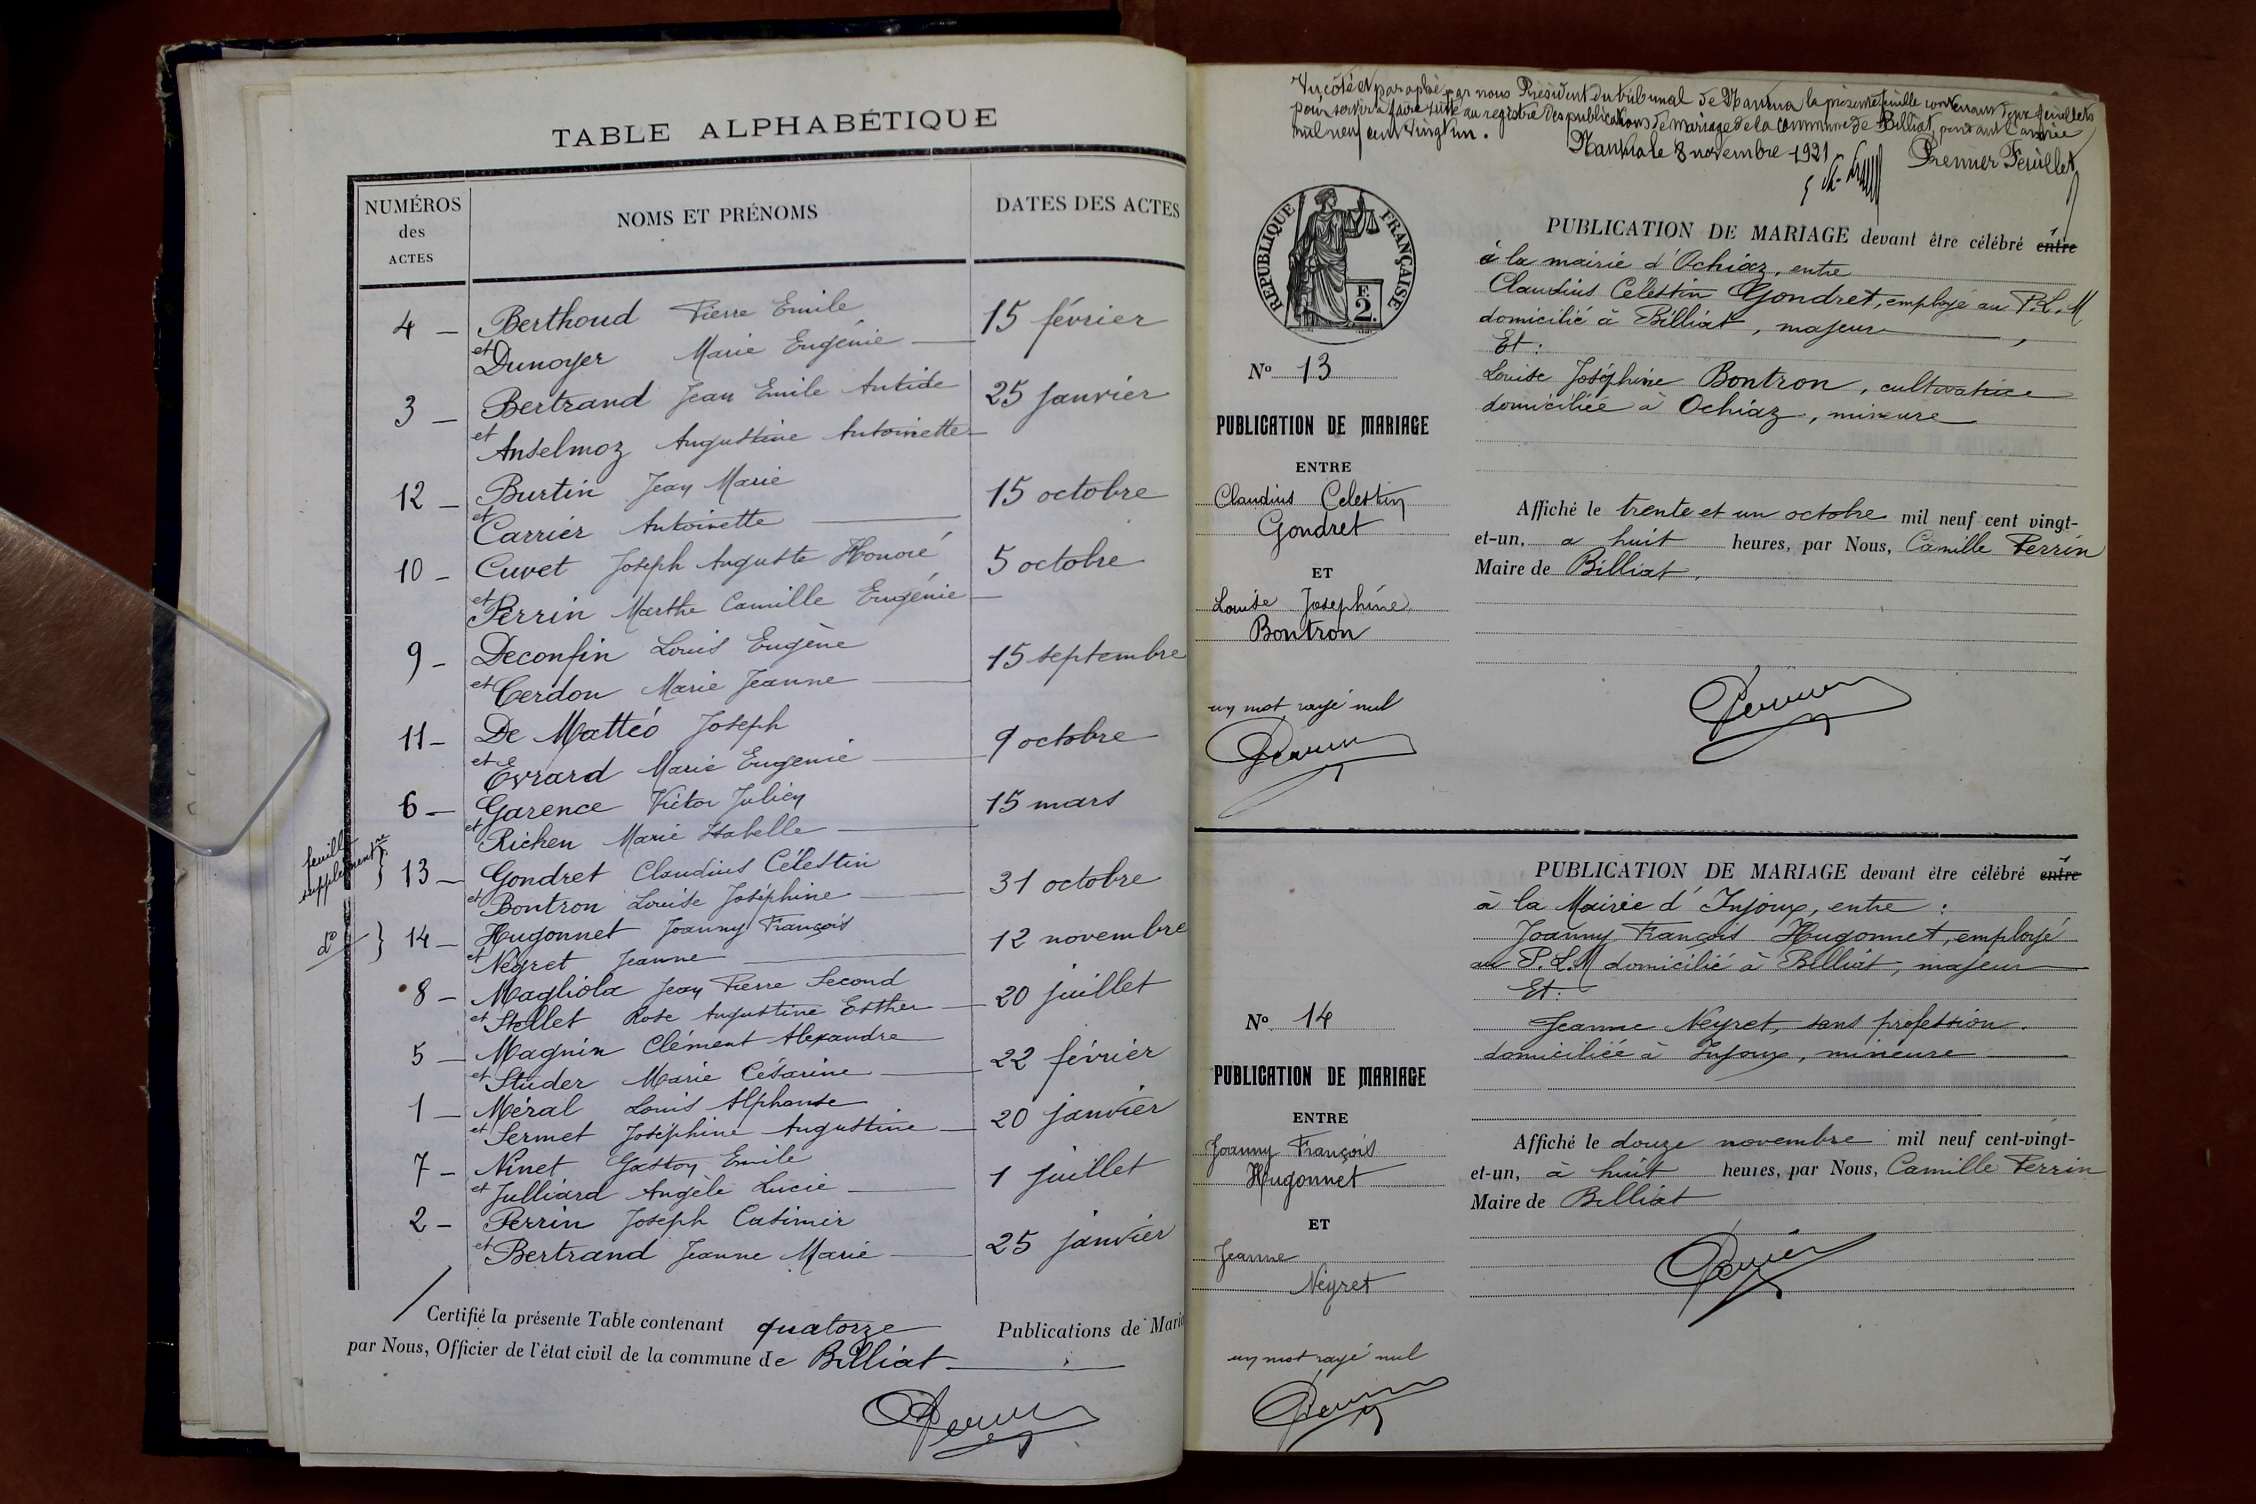 TABLE ALPHABÉTIQUE
NUMÉROS
des
ACTES
NOMS ET PRÉNOMS
DATES DES ACTES
4 — Berthoud Pierre Emile 15 février
et Dunoyer Marie Eugénie
3 — Bertrand Jean Emile Antide 25 janvier
et Anselmoz Augustine Antoinette
12 — Burtin Jean Marie 15 octobre
et Carrier Antoinette
10 — Cuvet Joseph Auguste Honoré 5 octobre
et Perrin Marthe Camille Eugénie
9 — Deconfin Louis Eugène 15 septembre
et Cerdon Marie Jeanne
11 — De Mattéo Joseph 9 octobre
et Evrard Marie Eugenie
6 — Garence Victor Julien 15 mars
et Richen Marie Isabelle
feuille
supplément.re } 13 — Gondret Claudius Célestin 31 octobre
et Bontron Louise Joséphine
do } 14 — Hugonnet Joanny François 12 novembre
et Neyret Jeanne
8 — Magliola Jean Pierre Second 20 juillet
et Stellet Rose Augustine Esther
5 — Magnin Clément Alexandre 22 février
et Studer Marie Césarine
1 — Méral Louis Alphonse 20 janvier
et Sermet Joséphine Augustine
7 — Ninet Gaston Emile 1 juillet
et Julliard Angèle Lucie
2 — Perrin Joseph Casimir 25 janvier
et Bertrand Jeanne Marie
Certifié la présente Table contenant quatorze Publications de Maria
par Nous, Officier de l'état civil de la commune de Billiat
Perrin
Vu, coté et paraphé par nous Président du tribunal de Nantua la présente feuille contenant deux feuillets
pour servir à faire suite au registre des publications de mariage de la commune de Billiat, pendant l'année
mil neuf cent vingt un.
Nantua le 8 novembre 1921
Premier Feuillet
REPUBLIQUE FRANÇAISE
F.
2.
No 13
PUBLICATION DE MARIAGE
ENTRE
Claudius Celestin
Gondret
ET
Louise Josephine
Bontron
un mot rayé nul
Perrin
PUBLICATION DE MARIAGE devant être célébré entre
à la mairie d'Ochiaz, entre
Claudius Célestin Gondret, employé au P.L.M
domicilié à Billiat, majeur,
Et :
Louise Joséphine Bontron, cultivatrice
domiciliée à Ochiaz, mineure
Affiché le trente et un octobre mil neuf cent vingt-
et-un, a huit heures, par Nous, Camille Perrin
Maire de Billiat.
Perrin
No 14
PUBLICATION DE MARIAGE
ENTRE
Joanny François
Hugonnet
ET
Jeanne
Neyret
un mot rayé nul
Perrin
PUBLICATION DE MARIAGE devant être célébré entre
à la Mairie d'Injoux, entre :
Joanny François Hugonnet, employé
au P.L.M domicilié à Billiat, majeur
Et :
Jeanne Neyret, sans profession.
domiciliée à Injoux, mineure
Affiché le douze novembre mil neuf cent-vingt-
et-un, à huit heures, par Nous, Camille Perrin
Maire de Billiat
Perrin